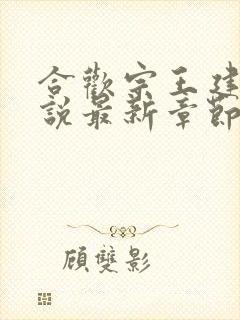 合歡宗王建
說最新章節
顧雙影